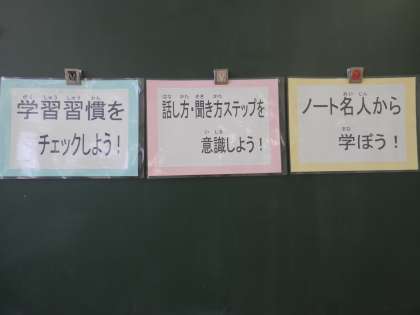 学習習慣を
チェックしよう！
話し方・聞き方ステップを
意識しよう！
ノート名人から
学ぼう！